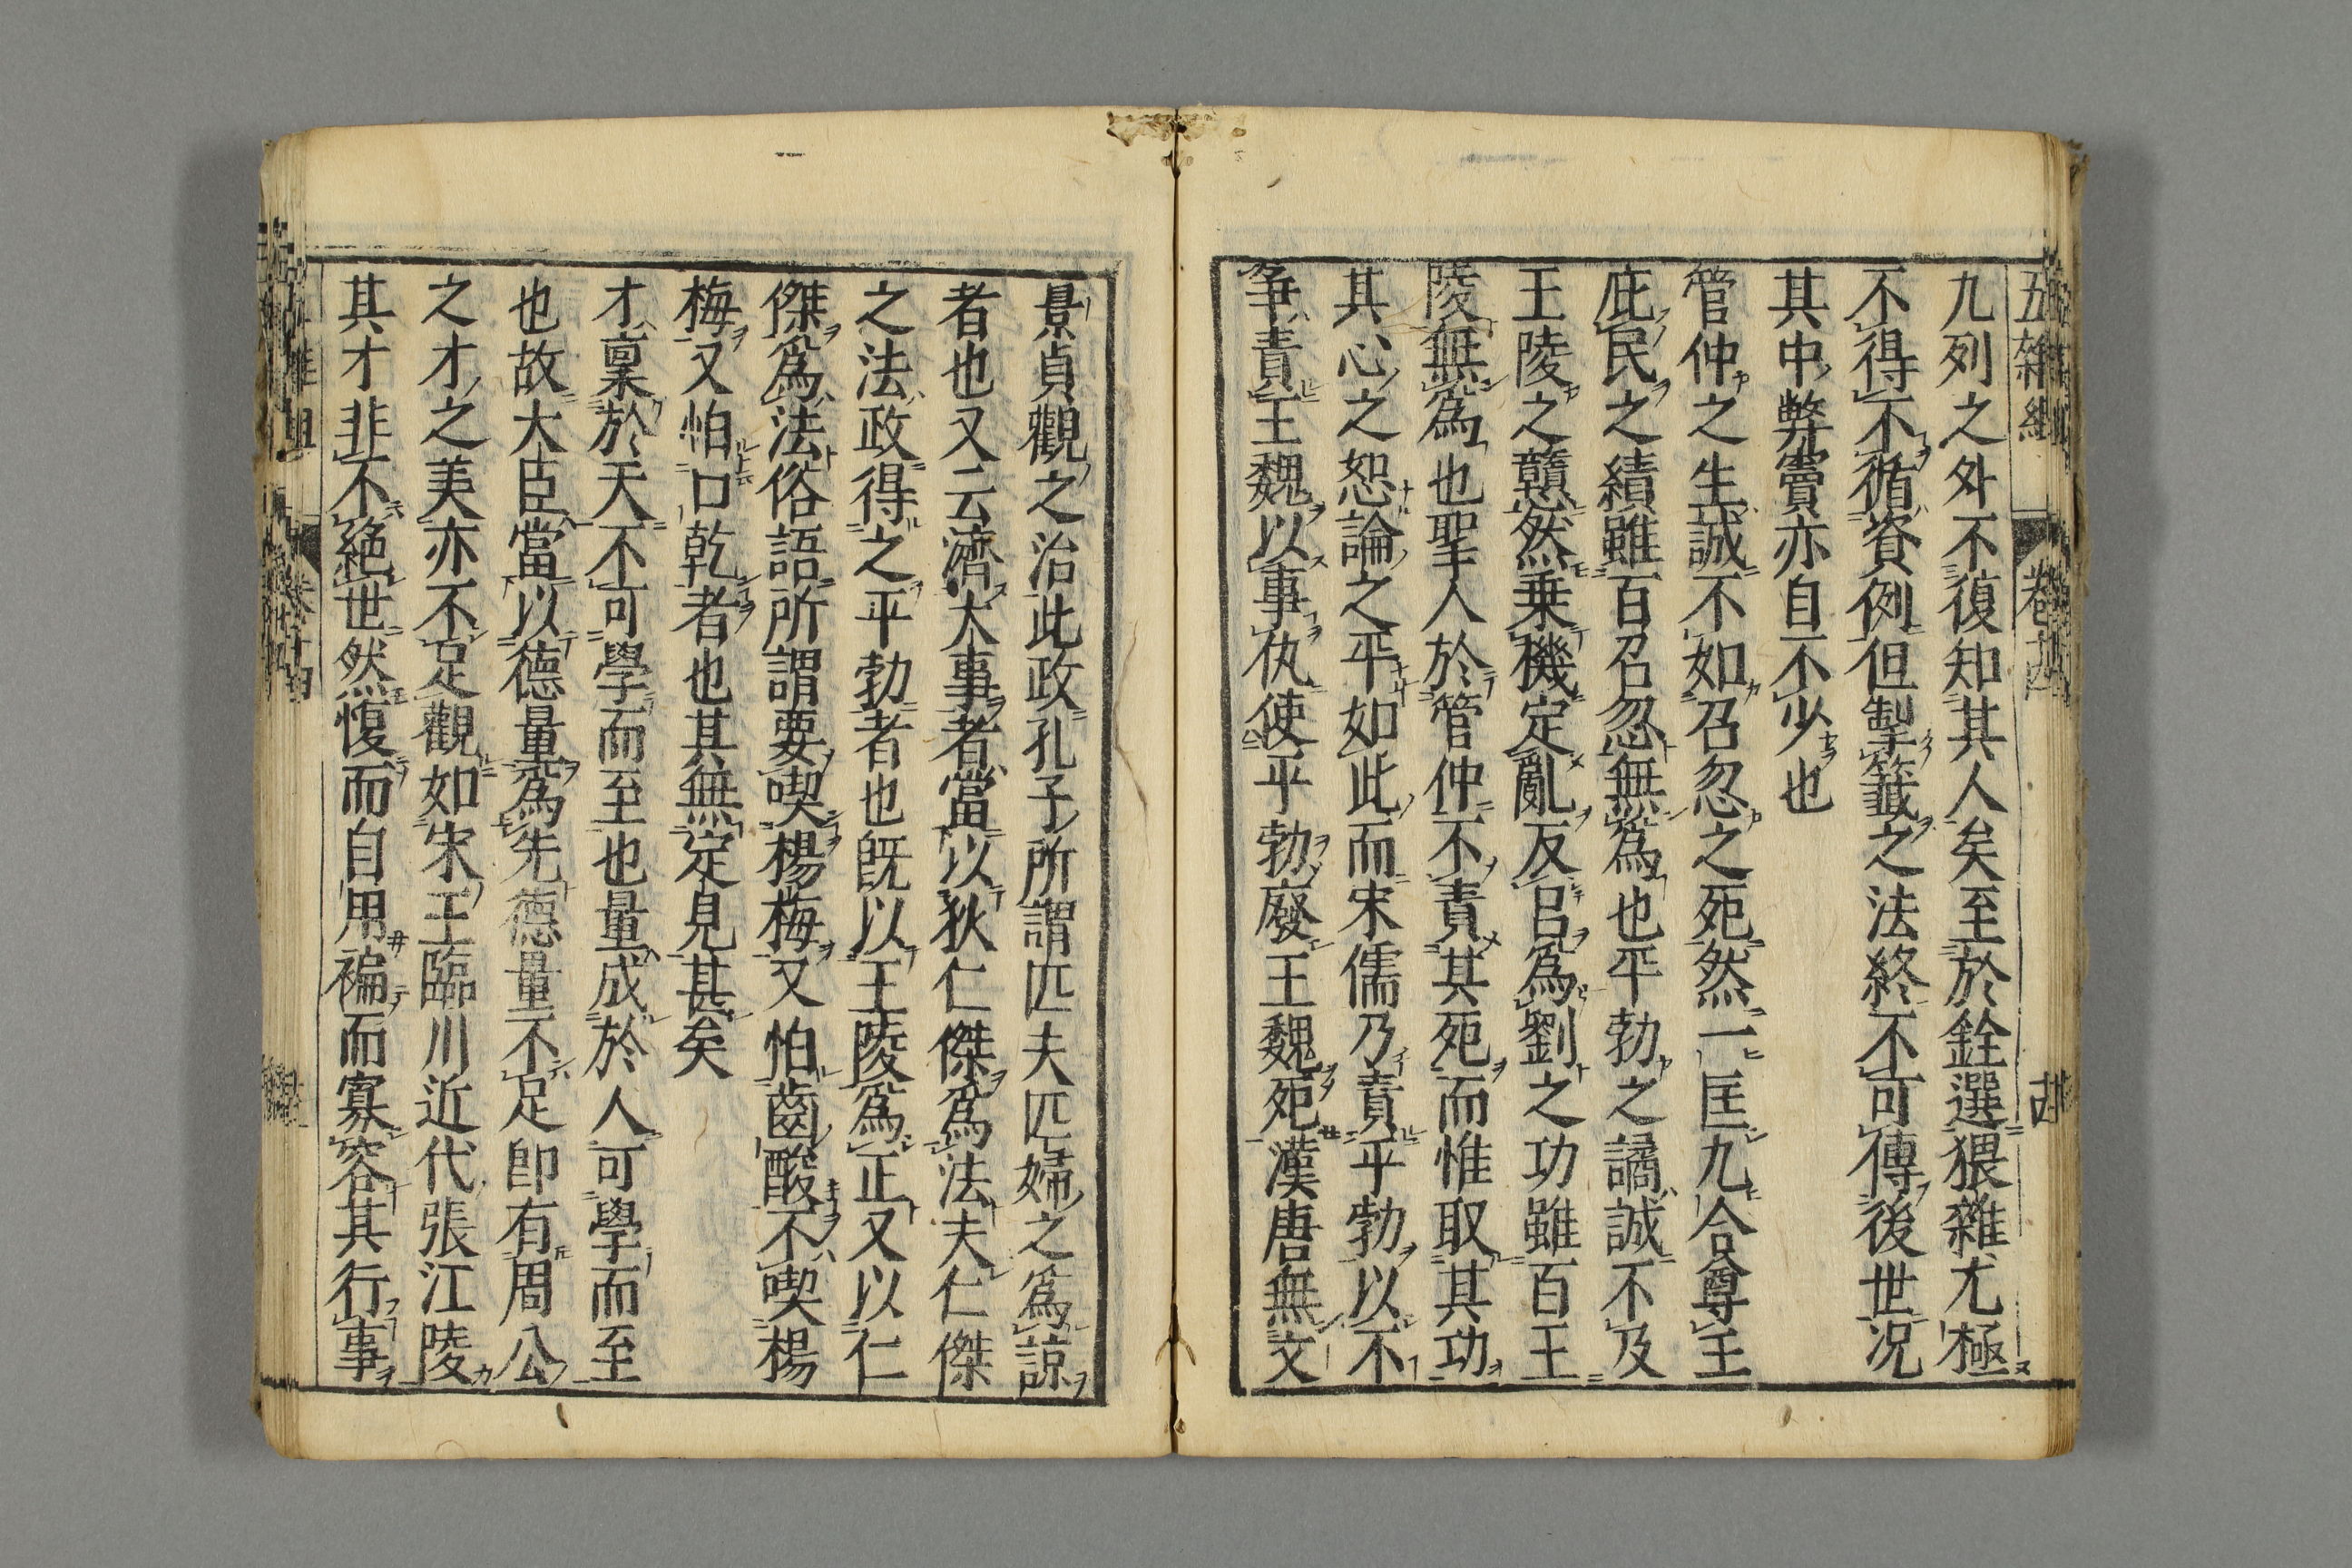 五雜組
卷十四
九列之外不復知其人矣至於銓選猥雜尤極
不得不循資例但掣籤之法終不可傳後世况
其中弊竇亦自不少也
管仲之生誠不如召忽之死然一匡九合尊主
庇民之績雖百召忽無爲也平勃之譎誠不及
王陵之戇然乗機定亂反呂爲劉之功雖百王
陵無爲也聖人於管仲不責其死而惟取其功
其心之恕論之平如此而宋儒乃責平勃以不
争責王魏以事仇使平勃廢王魏死漢唐無文
景貞觀之治此政孔子所謂匹夫匹婦之爲諒
者也又云濟大事者當以狄仁傑爲法夫仁傑
之法政得之平勃者也既以王陵爲正又以仁
傑爲法俗語所謂要喫楊梅又怕齒酸不喫楊
梅又怕口乾者也其無定見甚矣
才稟於天不可學而至也量成於人可學而至
也故大臣當以德量爲先德量不足卽有周公
之才之美亦不足觀如宋王臨川近代張江陵
其才非不絶世然愎而自用褊而寡容其行事